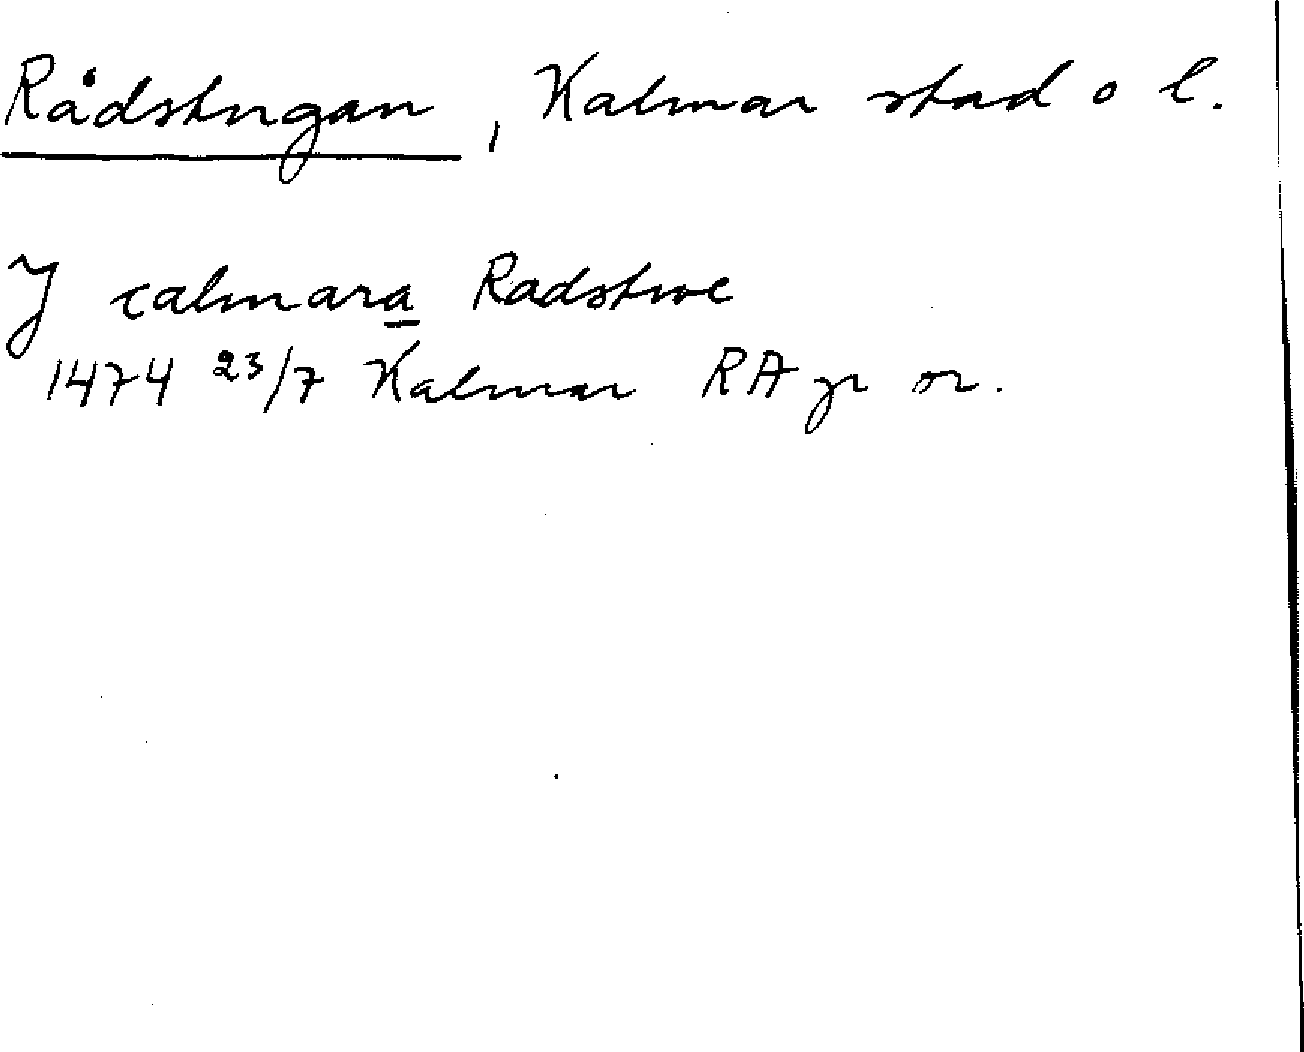 Rådstugan, Kalmar stad o l.
J calmara Radstwe
1474 23/7 Kalmar RAp or.